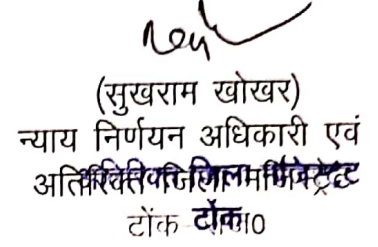 (सुखराम खोखर)
न्याय निर्णयन अधिकारी एवं
अतिरिक्त जिला मजिस्ट्रेट
टोंक